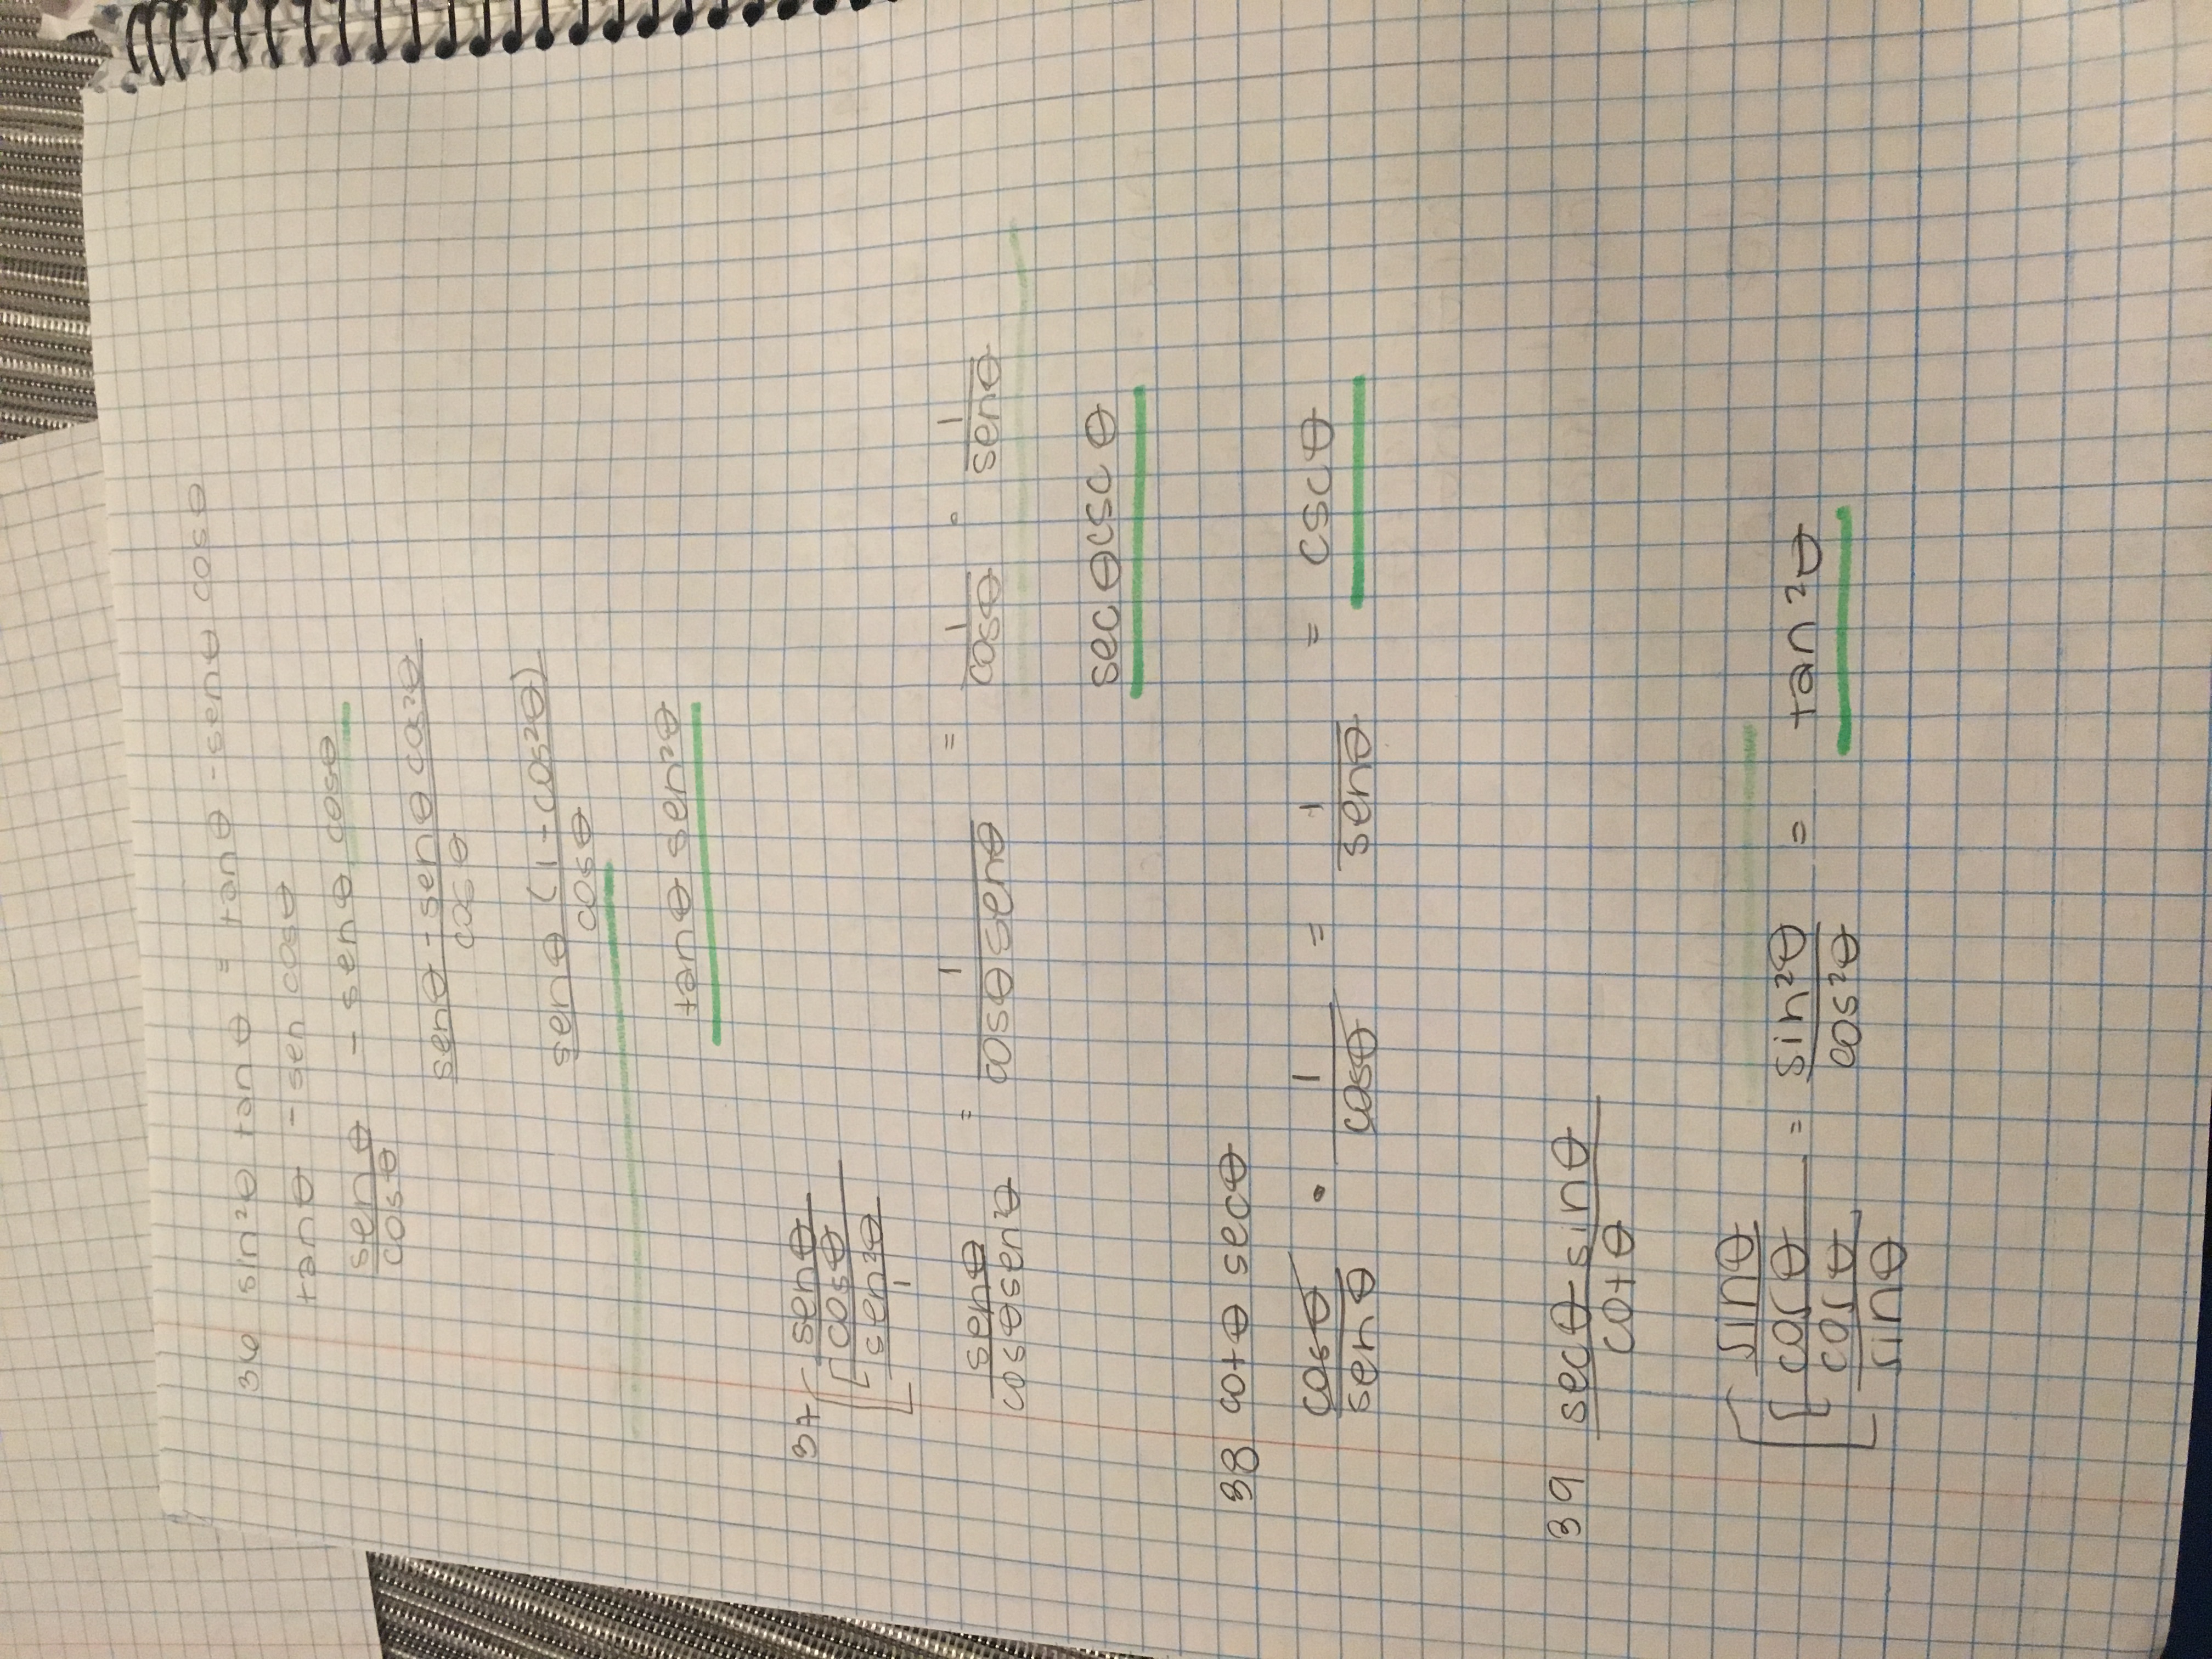 36 sin²θ tanθ = tanθ - senθ cosθ
tanθ - sen cosθ
senθ/cosθ - senθ cosθ
senθ - senθ cos²θ / cosθ
senθ (1 - cos²θ) / cosθ
tanθ sen²θ
37 senθ/cosθ / sen²θ/1
senθ / cosθsen²θ = 1 / cosθsenθ = 1/cosθ · 1/senθ
secθcscθ
38 cotθ secθ
cosθ/senθ · 1/cosθ = 1/senθ = cscθ
39 secθ sinθ / cotθ
sinθ/cosθ / cosθ/sinθ = sin²θ/cos²θ = tan²θ